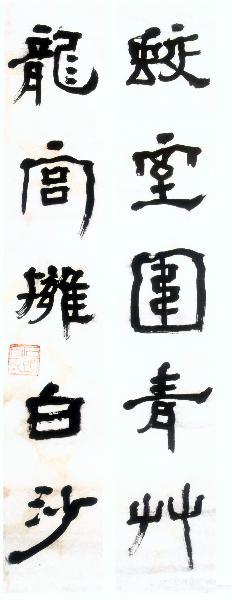 蛟室圍青艸
龍宮擁白沙